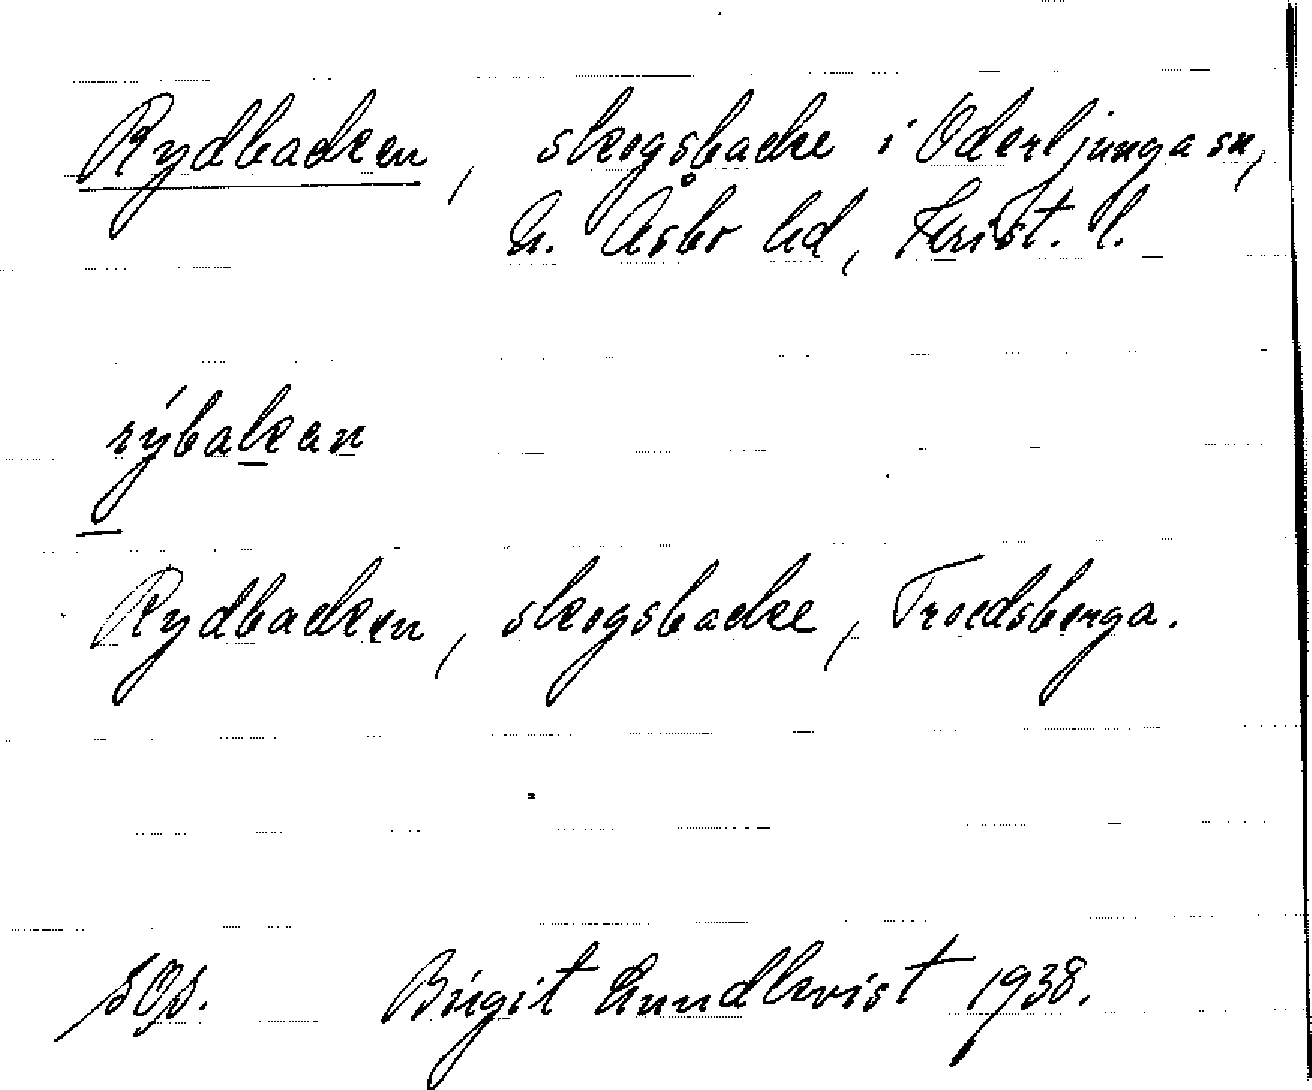 Rydbacken, skogsbacke i Oderljunga sn,
N. Åsbo hd, Krist. l.
rýbakan
Rydbacken, skogsbacke, Troedsberga.
SOS. Birgit Lundkvist 1938.